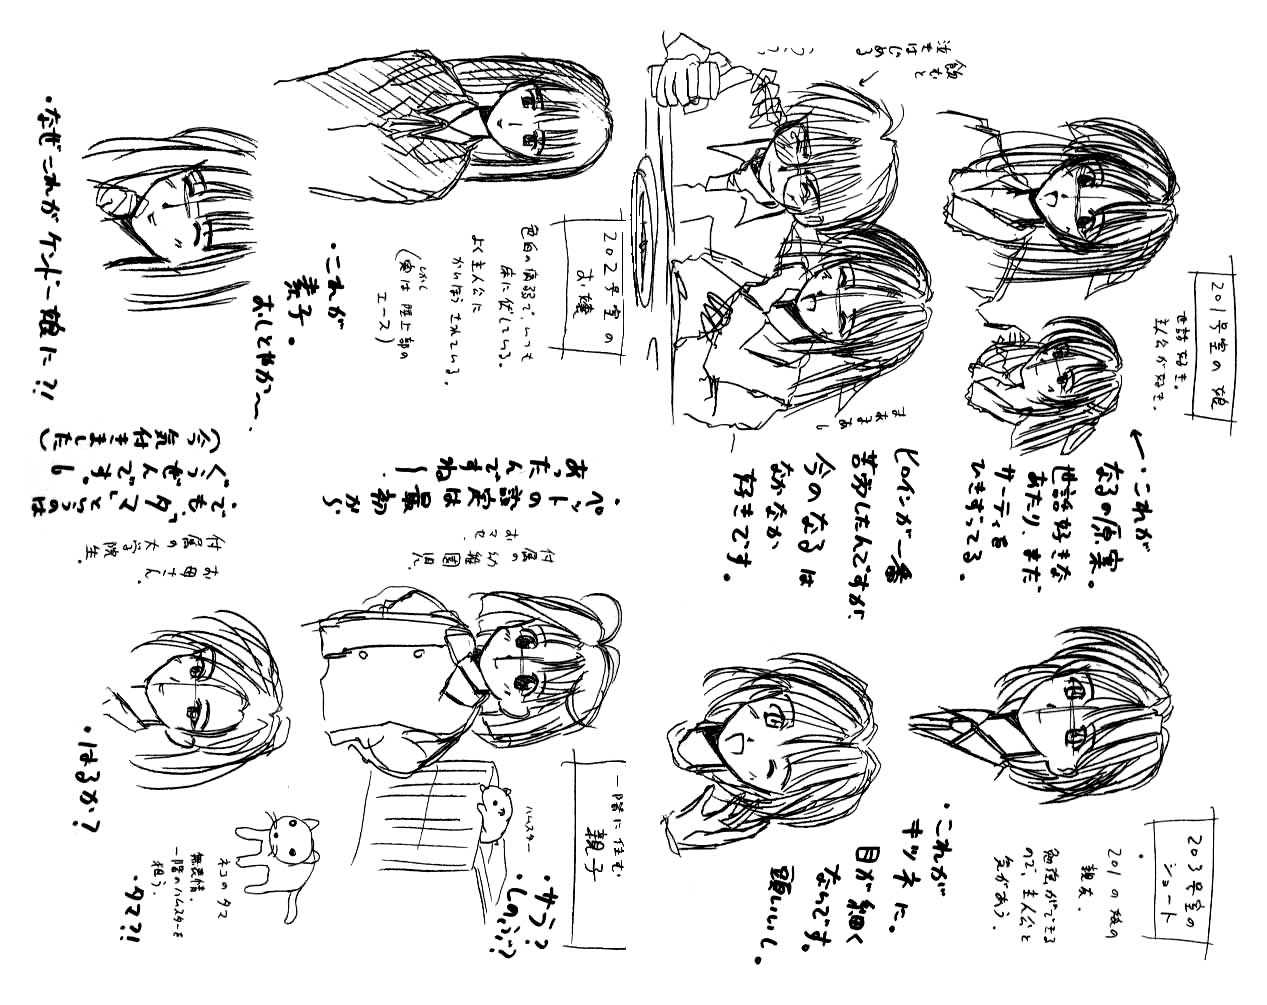 201号室の娘
世話好き。
主人公が好き。
←・これが
なるの原案。
世話好きな
あたり、まだ
サーティを
ひきずってる。
飲むと
泣きはじめる
まあまあ
ヒロインが一番
苦労したんですが、
今のなるは
なかなか
好きです。
203号室の
ショート
201の娘の
親友。
勉強ができる
ので、主人公と
気があう。
・これが
キツネに。
目が細く
なんです。
頭いいし。
202号室の
お嬢
色白の病弱で、いつも
床に伏している。
よく主人公に
かんぽうされている。
(しかし
実は陸上部の
エース)
・これが
素子。
おしとやか〜。
・なぜこれがケンドー娘に?!
一階に住む
親子
付属の幼稚園児。
おマセ。
・ペットの設定は最初から
あったんですねー
ハムスター
・サラ?
・しのぶ?
お母さん。
付属の大学院生。
・でも、「タマ」というのは
ぐうぜんです。
(今気付きました)
・はるか?
ネコのタマ
無表情。
一階のハムスターを
狙う。
・タマ?!